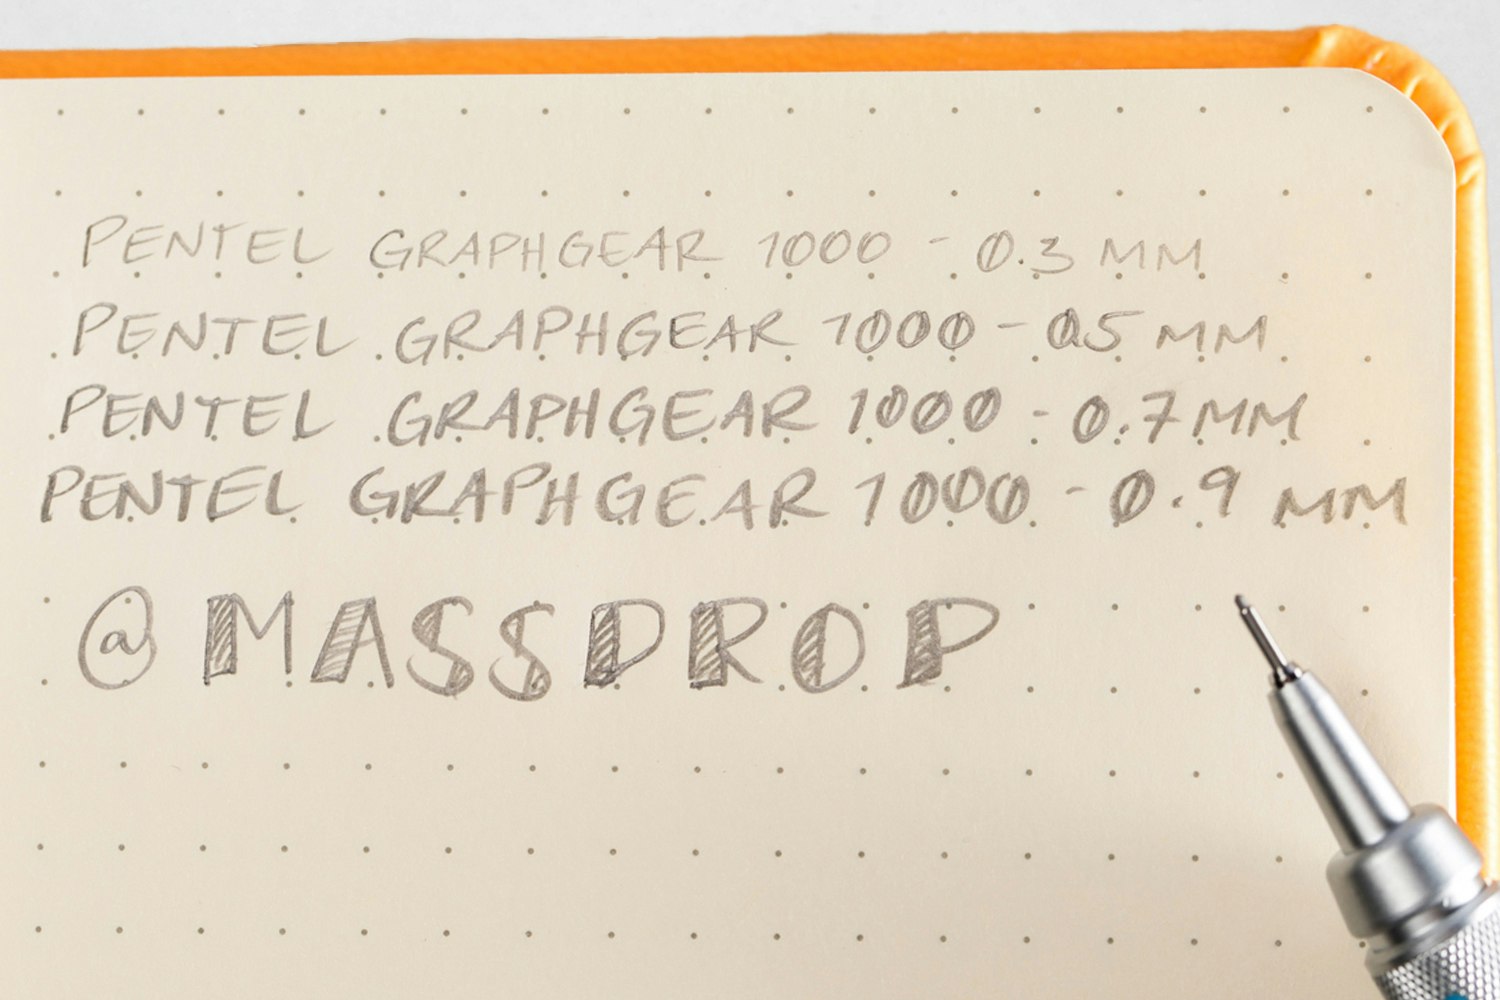 PENTEL GRAPHGEAR 1000 - 0.3 MM
PENTEL GRAPHGEAR 1000 - 0.5 MM
PENTEL GRAPHGEAR 1000 - 0.7 MM
PENTEL GRAPHGEAR 1000 - 0.9 MM
@MASSDROP